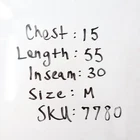 Chest: 15
Length: 55
Inseam: 30
Size: M
SKU: 7780